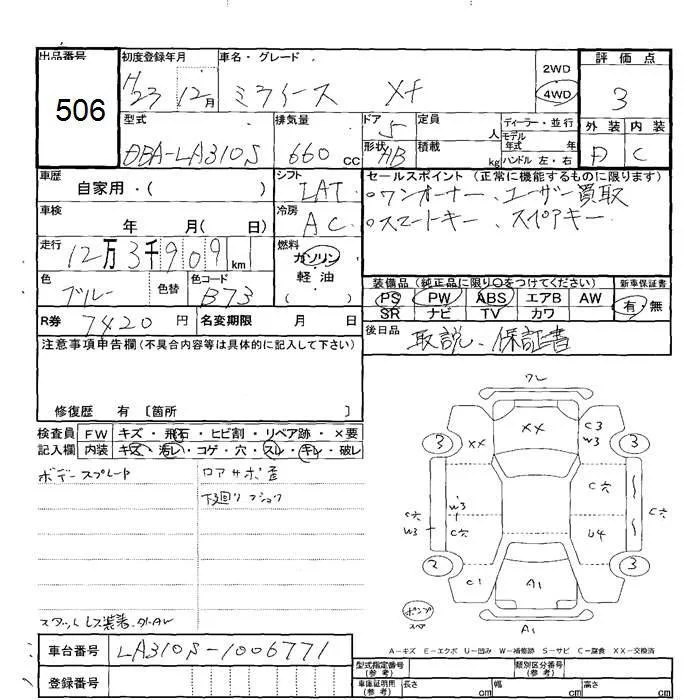 出品番号 506
初度登録年月 H23 12月
車名・グレード ミライース Xf
2WD
4WD
評価点 3
外装 内装
D C
型式 DBA-LA310S
排気量 660 cc
ドア 5
形状 HB
定員 人
積載 kg
ディーラー・並行
モデル年式 年
ハンドル 左・右
車歴 自家用・( )
シフト LAT
セールスポイント (正常に機能するものに限ります)
○ワンオーナー、ユーザー買取
○スマートキー、スペアキー
車検 年 月( 日)
冷房 AC
走行 12万3千909km
燃料 ガソリン
軽油
( )
色 ブルー
色替
色コード B73
装備品 (純正品に限り○をつけてください)
新車保証書
PS PW ABS エアB AW
SR ナビ TV カワ
有・無
R券 7420円
名変期限 月 日
後日品 取説、保証書
注意事項申告欄 (不具合内容等は具体的に記入して下さい)
修復歴 有 〔箇所 〕
検査員 FW キズ・飛石・ヒビ割・リペア跡・×要
記入欄 内装 キズ・汚レ・コゲ・穴・スレ・キレ・破レ
ボデースプレード
ロアサポ歪
下廻りフショク
スタットレス装着、外AW
ワレ
XX
XX
C3
W3
3
3
C穴
W3
C穴
C穴
W3
C穴
U4
2
3
C1
A1
A1
ポンプ
スペ
A-キズ E-エクボ U-凹み W-補修跡 S-サビ C-腐食 XX-交換済
車台番号 LA310S-1006771
登録番号
型式指定番号 (参考)
類別区分番号 (参考)
車庫証明用 (参考) 長さ cm 幅 cm 高さ cm